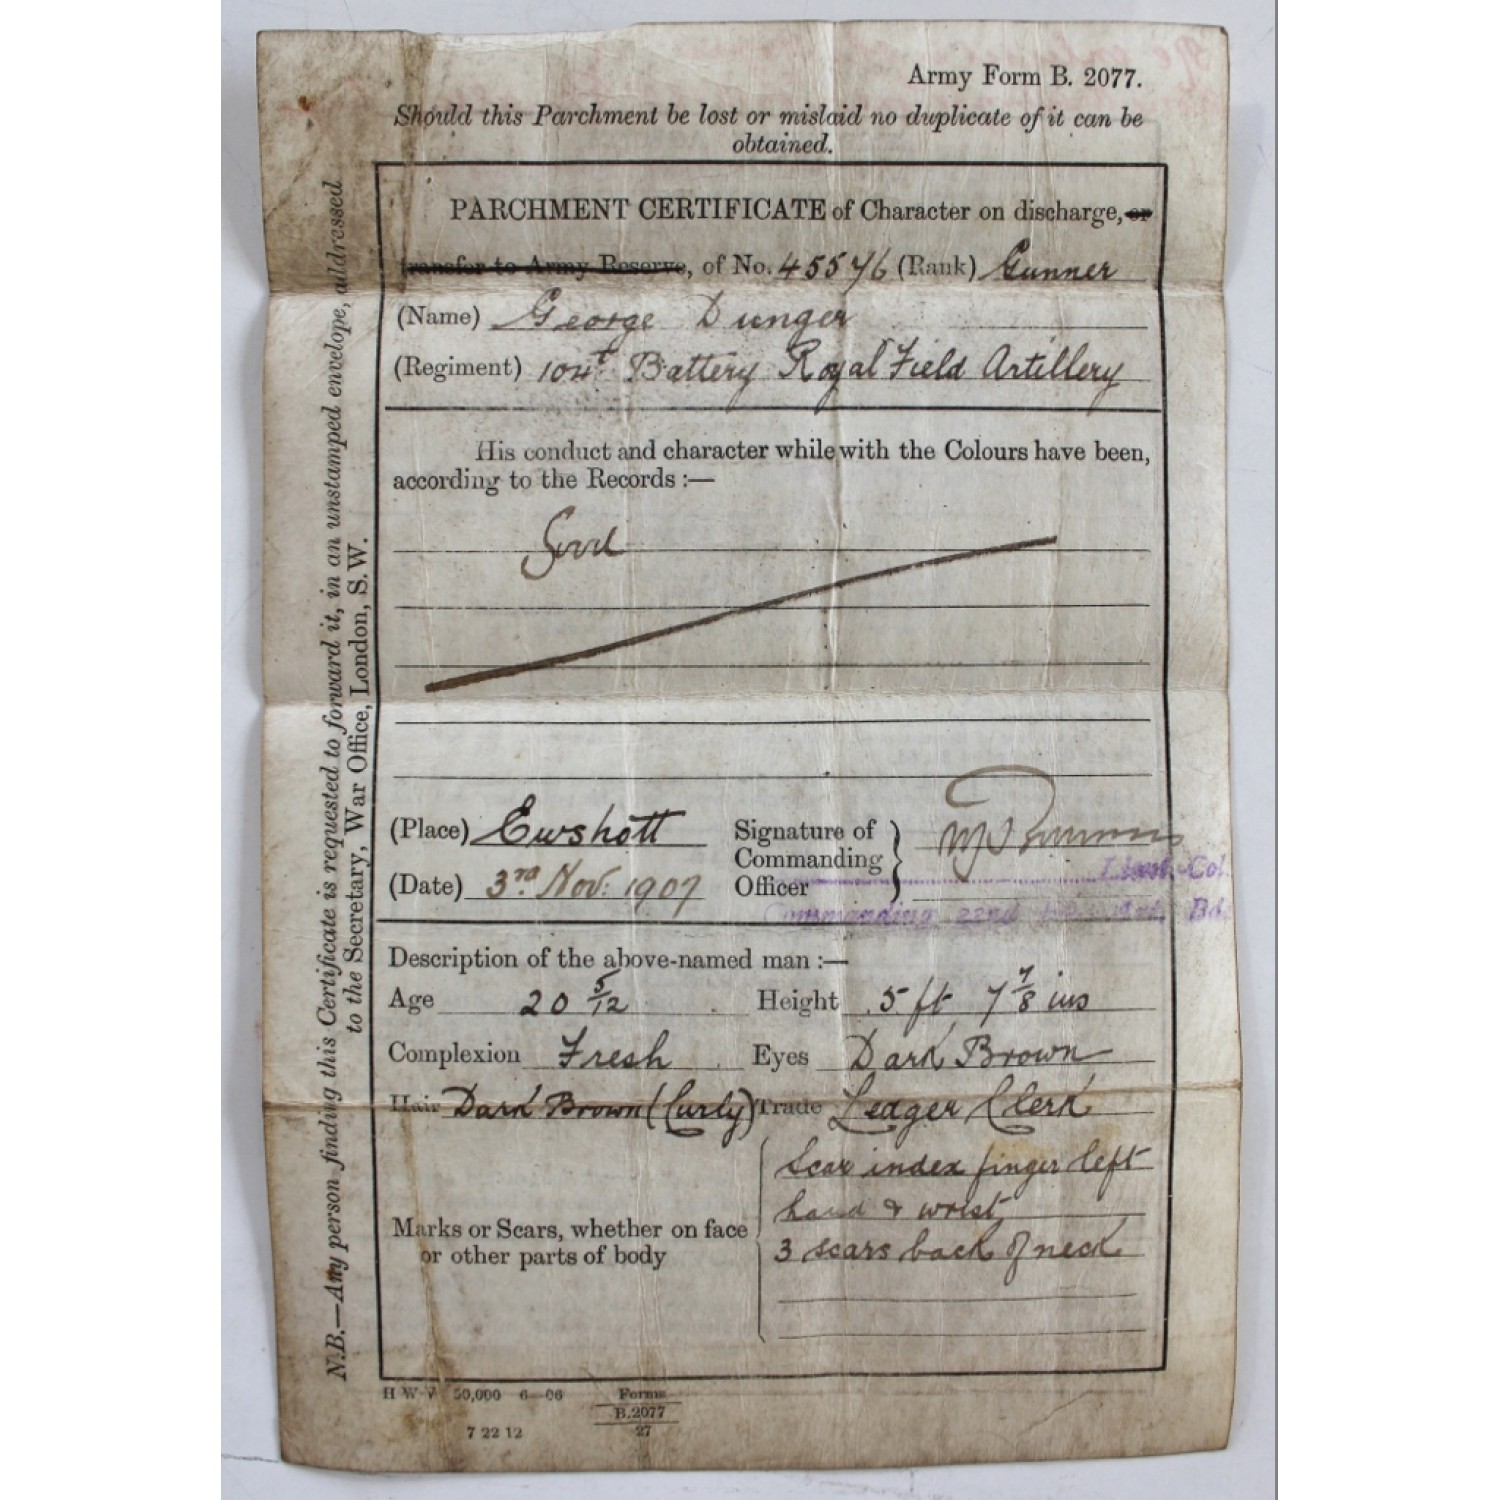 Army Form B. 2077.
Should this Parchment be lost or mislaid no duplicate of it can be
obtained.
PARCHMENT CERTIFICATE of Character on discharge, or
transfer to Army Reserve, of No. 45576 (Rank) Gunner
(Name) George Dunger
(Regiment) 104t Battery Royal Field Artillery
His conduct and character while with the Colours have been,
according to the Records :—
Good
(Place) Ewshott
(Date) 3rd Nov: 1907
Signature of
Commanding
Officer
Lieut. Col.
Commanding 22nd Bd.
Description of the above-named man :—
Age 20 5/12 Height 5 ft 7 7/8 ins
Complexion Fresh Eyes Dark Brown
Hair Dark Brown (Curly) Trade Ledger Clerk
Marks or Scars, whether on face
or other parts of body
Scar index finger left
hand & wrist
3 scars back of neck
H W V 50,000 6—06 Forms
B.2077
27
7 22 12
N.B.—Any person finding this Certificate is requested to forward it, in an unstamped envelope, addressed
to the Secretary, War Office, London, S.W.